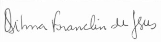 Dilma Franclin de Jesus